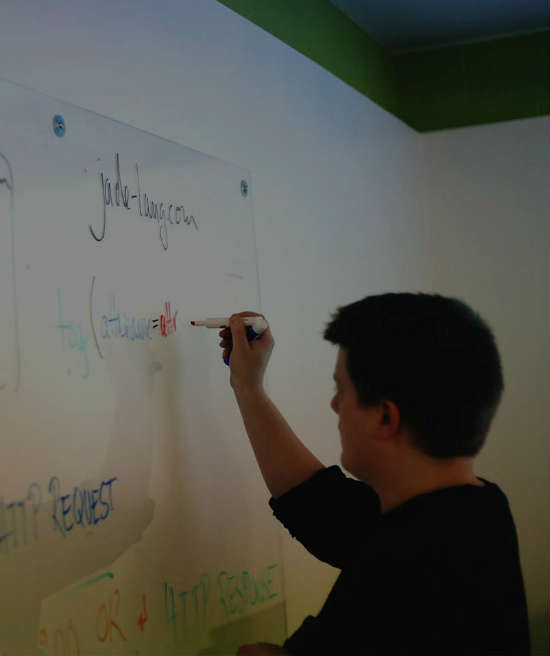 jade-lang.com
tag(attrname=attr
HTTP REQUEST
OR HTTP RESPONSE